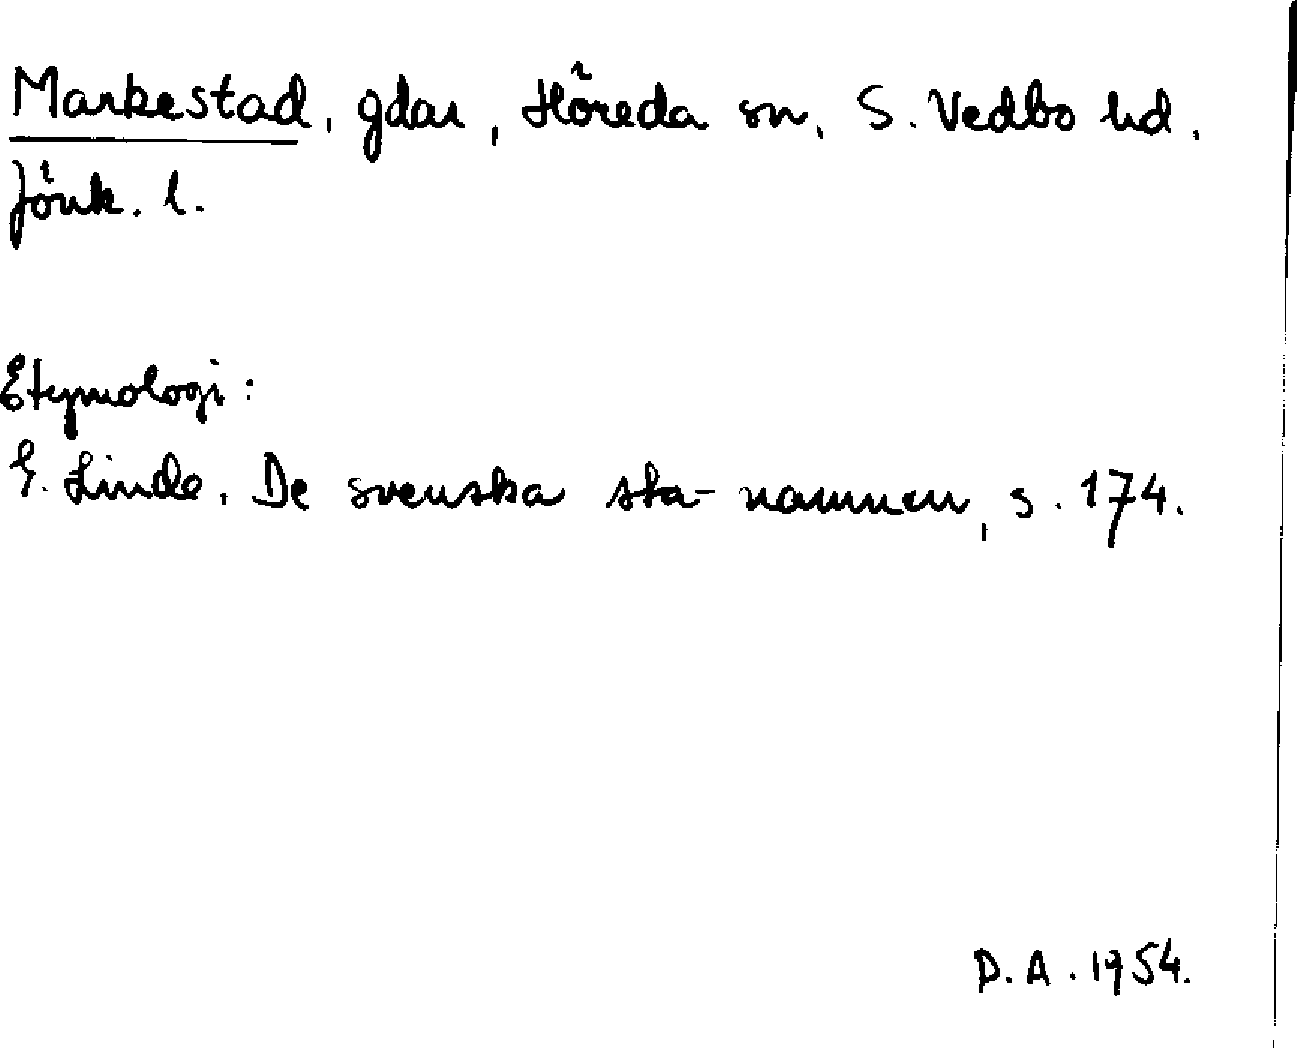 Markestad, gdar, Höreda sn, S. Vedbo hd.
Jönk. l.
Etymologi:
G. Linde, De svenska sta-namnen, s. 174.
D. A. 1954.